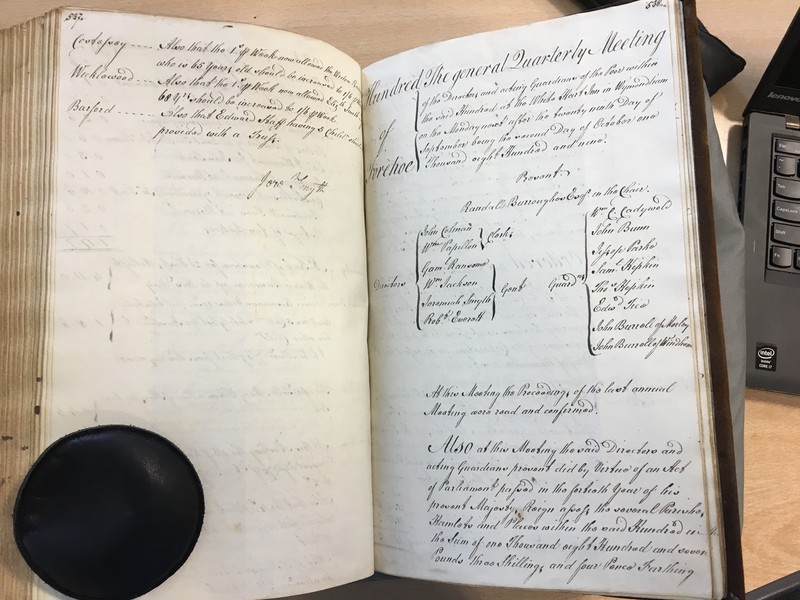 537.
Costessey ---- Also that the 1s. pr Week now allowed the Widow
who is 65 Years old should be increased to 1/6 pr
Wicklewood --- Also that the 1s. pr Week now allowed Elizth Smith
68 Yrs. should be increased to 1/6 pr Week.
Barford ------ Also that Edward Staff having 5 Childn should
provided with a Truss.
Jere. Smyth
538.
Hundred of Forehoe
The general Quarterly Meeting
of the Directors and acting Guardians of the Poor within
the said Hundred at the White Hart Inn in Wymondham
on the Monday next after the twenty ninth Day of
September being the second Day of October one
Thousand eight Hundred and nine.
Present.
Randall Burroughes Esqr. in the Chair.
Directors
John Colman
Wm. Papillon
Clerks
Gaml. Ransome
Wm. Jackson
Jeremiah Smyth
Robt. Everatt
Gent
Guardns
Wm. C. Cadywold
John Bunn
Jessop Parke
Saml. Hipkin
Thos. Hipkin
Edwd. Tico
John Burrell of Morley
John Burrell of Windham
At this Meeting the Proceedings of the last annual
Meeting were read and confirmed.
Also at this Meeting the said Directors and
acting Guardians present did by Virtue of an Act
of Parliament passed in the fortieth Year of his
present Majesty's Reign assess the several Parishes,
Hamlets and Places within the said Hundred in
the Sum of one Thousand eight Hundred and seven
Pounds three Shillings and four Pence Farthing
lenovo
Tab
CapsLock
Shift
Fn
Ctrl
intel
inside
CORE i7